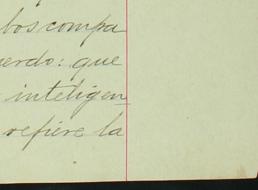 bos compa
uerdo: que
inteligen
refiere la